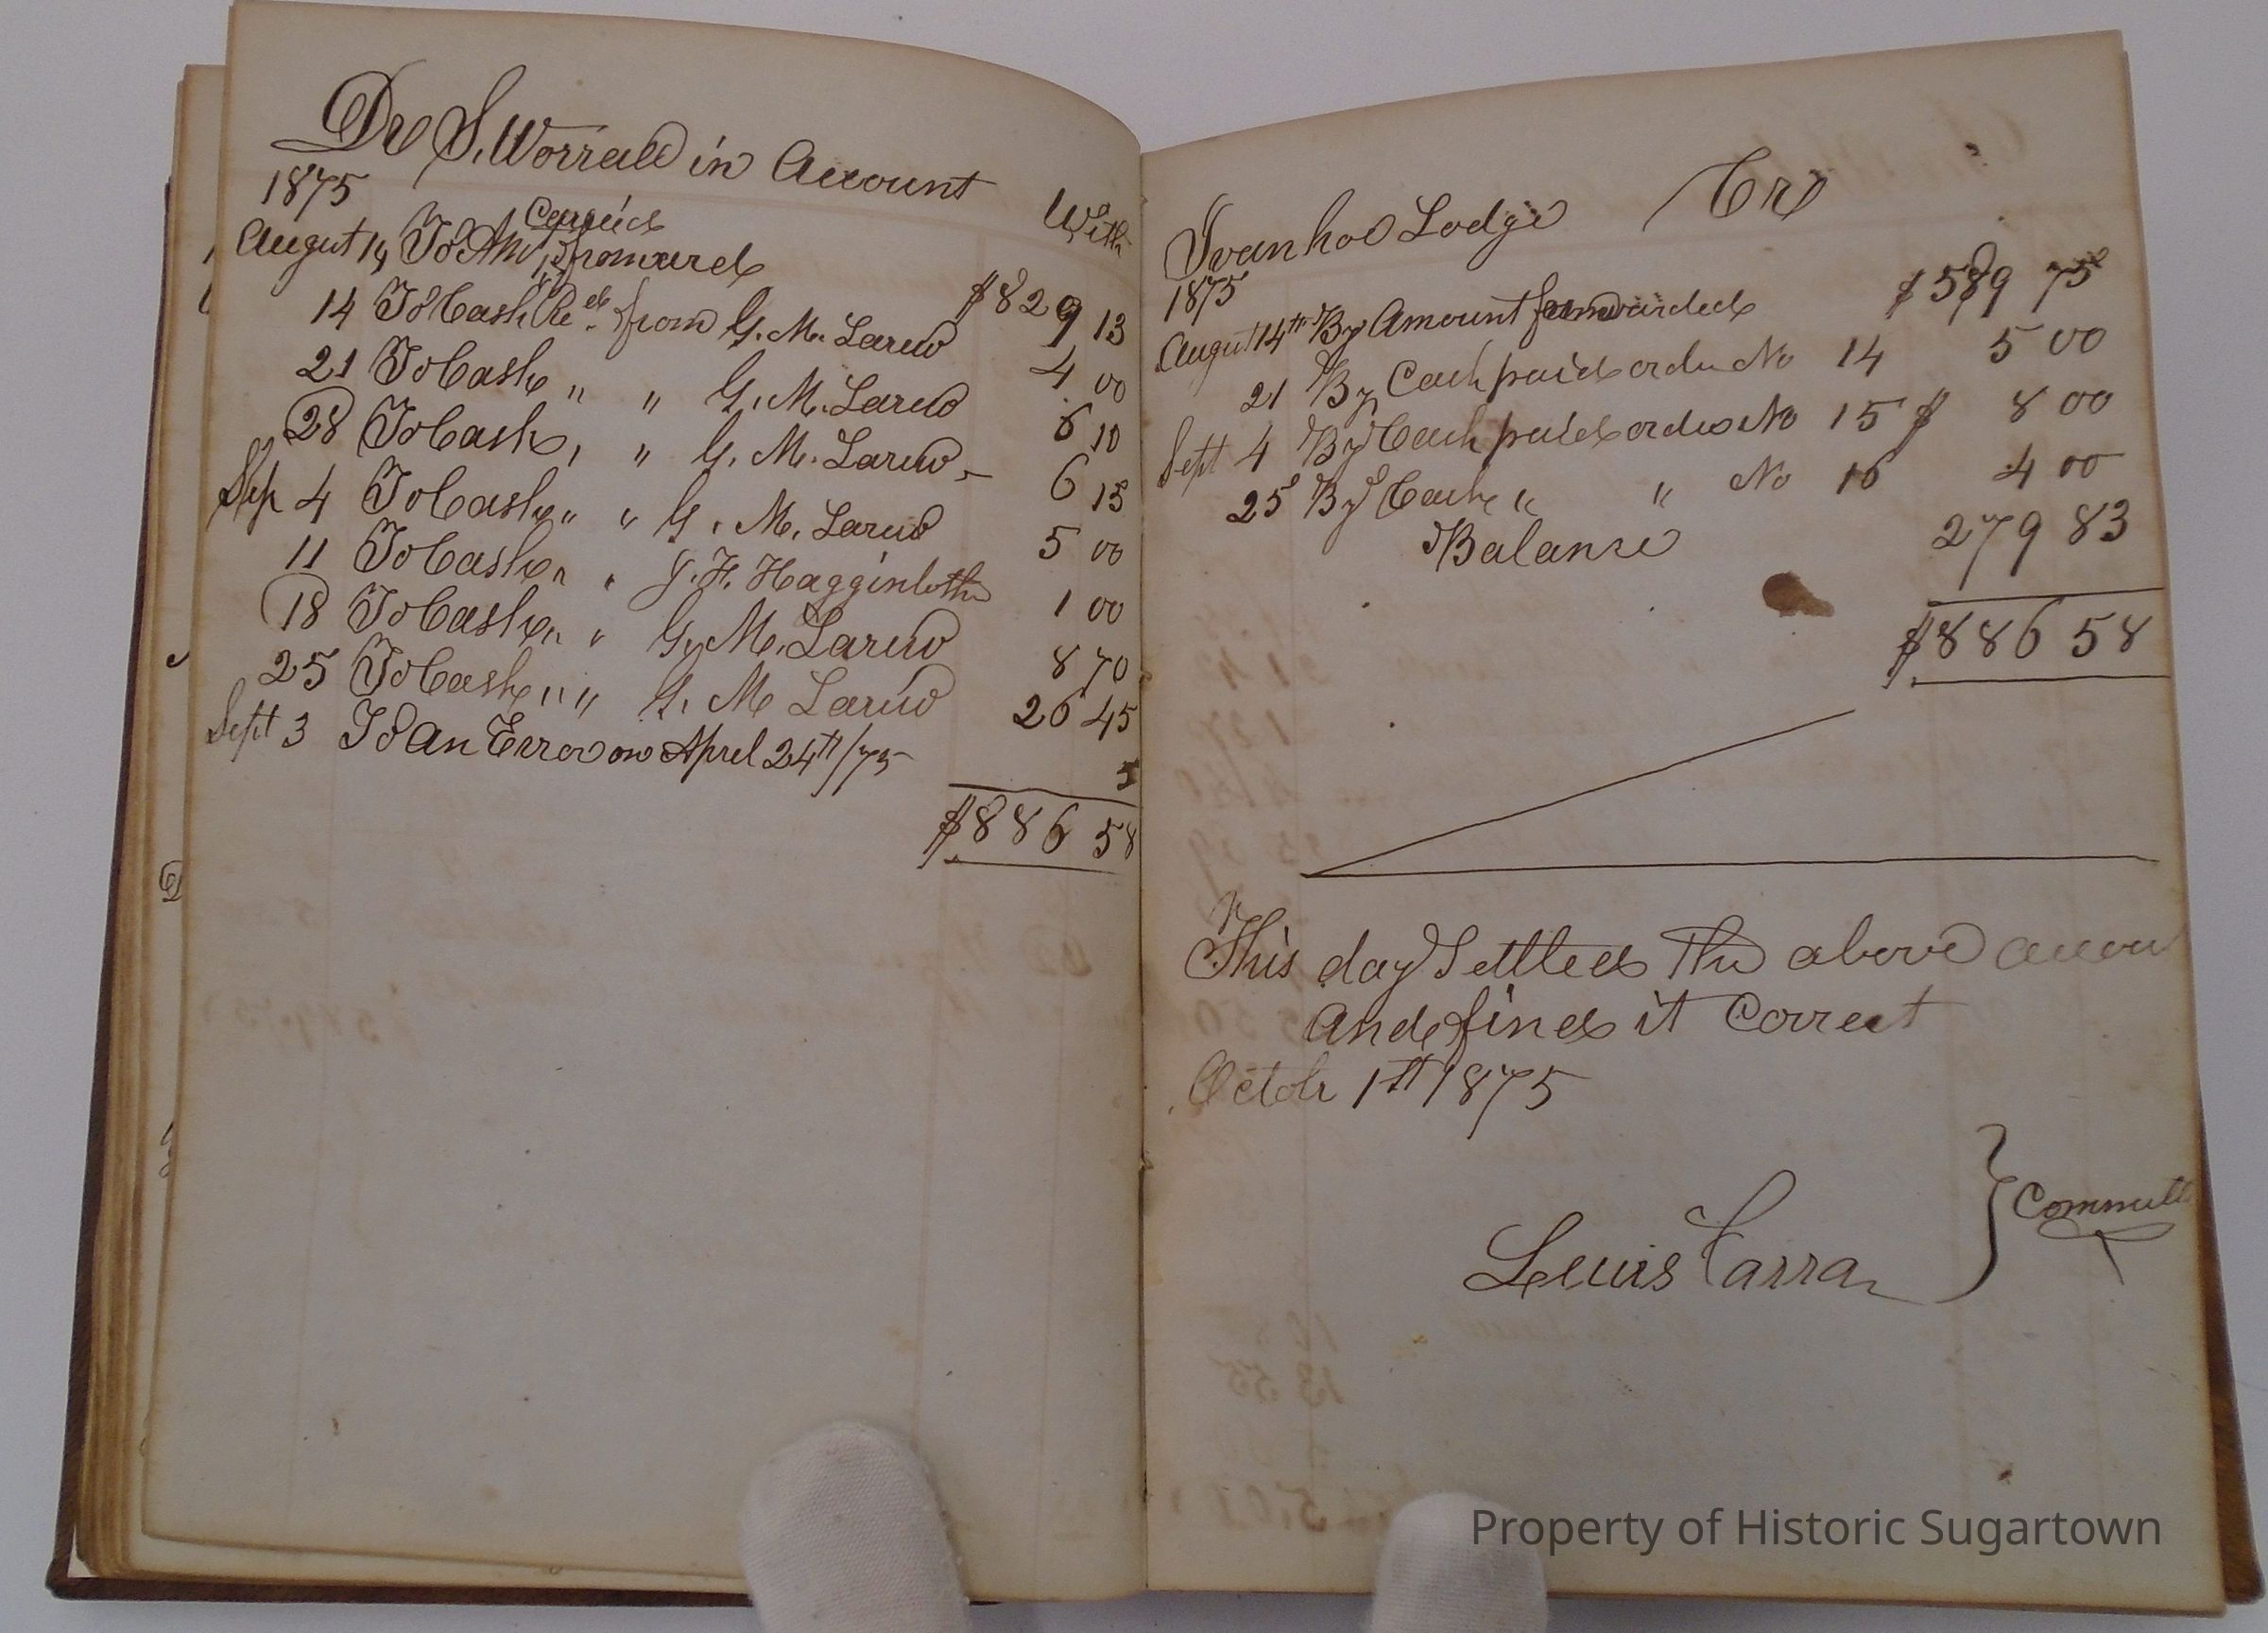 Dr S. Worrall in Account With
1875
Carried
August 14 To Am't forward $829 13
14 To Cash Recd from G. M. Larew 4 00
21 To Cash " " G. M. Larew 6 10
28 To Cash, " G. M. Larew - 6 15
Sep 4 To Cash " " G. M. Larew 5 00
11 To Cash " " J. H. 1 00
18 To Cash " " G. M. Larew 8 70
25 To Cash " " G. M Larew 26 45
Sept 3 To An Error on Aprel 24th/75 5
$886 58
Ivanhoe Lodge Cr
1875
August 14th By Amount forwarded $589 75
21 By Cash paid order No 14 5 00
Sept 4 By Cash paid order No 15 $ 8 00
25 By Cash " " No 16 4 00
Balance 279 83
$886 58
This day Settled The above accou
and find it Correct
Octobr 1st 1875
Lewis Farra } Committ
Property of Historic Sugartown